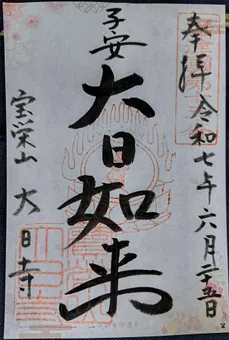 奉拝 令和七年六月二五日
子安
大日如来
宝栄山 大日寺